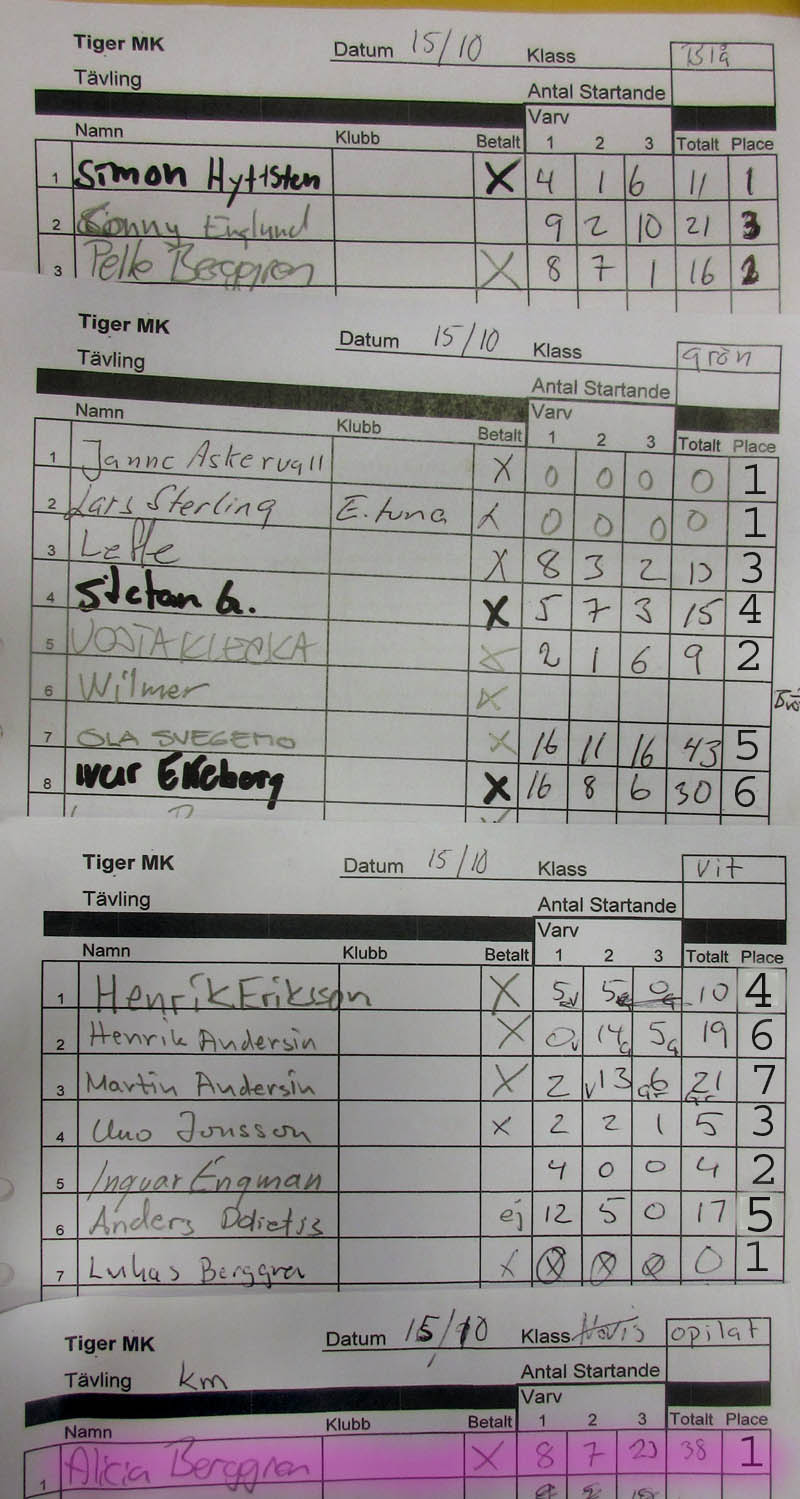 Tiger MK Datum 15/10 Klass Blå
Tävling Antal Startande
Varv
Namn Klubb Betalt 1 2 3 Totalt Place
1 Simon Hyttsten X 4 1 6 11 1
2 Conny Englund 9 2 10 21 3
3 Pelle Berggren X 8 7 1 16 2
Tiger MK Datum 15/10 Klass grön
Tävling Antal Startande
Varv
Namn Klubb Betalt 1 2 3 Totalt Place
1 Janne Askervall X 0 0 0 0 1
2 Lars Sterling E.tuna X 0 0 0 0 1
3 Leffe X 8 3 2 13 3
4 Stefan G. X 5 7 3 15 4
5 X 2 1 6 9 2
6 Wilmer X
7 OLA SVEGEMO X 16 11 16 43 5
8 Ivar Ekeborg X 16 8 6 30 6
Tiger MK Datum 15/10 Klass Vit
Tävling Antal Startande
Varv
Namn Klubb Betalt 1 2 3 Totalt Place
1 Henrik Eriksson X 5 5 0 10 4
2 Henrik Andersin X 0 14 5 19 6
3 Martin Andersin X 2 13 6 21 7
4 Uno Jonsson X 2 2 1 5 3
5 Ingvar Engman 4 0 0 4 2
6 Anders ej 12 5 0 17 5
7 Lukas Berggren X 0 0 0 0 1
Tiger MK Datum 15/10 Klass opilat
Tävling km Antal Startande
Varv
Namn Klubb Betalt 1 2 3 Totalt Place
1 Alicia Berggren X 8 7 23 38 1